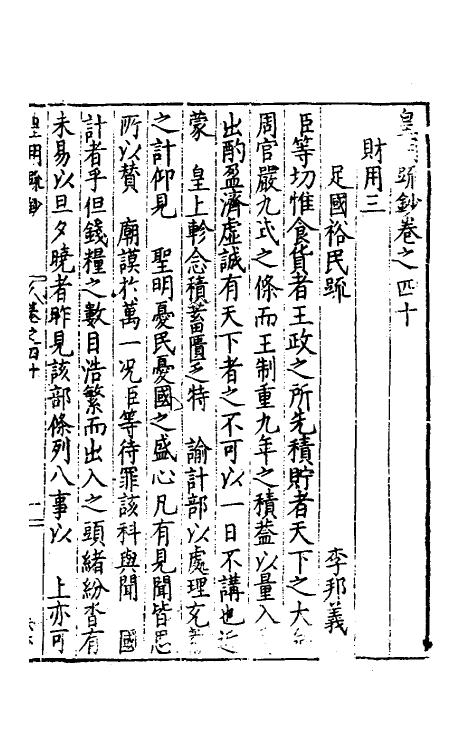 皇明疏鈔卷之四十
財用三
足國裕民疏 李邦義
臣等切惟食貨者王政之所先積貯者天下之大
周官嚴九式之條而王制重九年之積葢以量入
出酌盈濟虛誠有天下者之不可以一日不講也近
蒙 皇上軫念積蓄匱乏特 諭計部以處理充
之計仰見 聖明憂民憂國之盛心凡有見聞皆思
所以贊 廟謨於萬一况臣等待罪該科與聞 國
計者乎但錢糧之數目浩繁而出入之頭緒紛沓有
未易以旦夕曉者昨見該部條列八事以 上亦可
皇明疏鈔 卷之四十